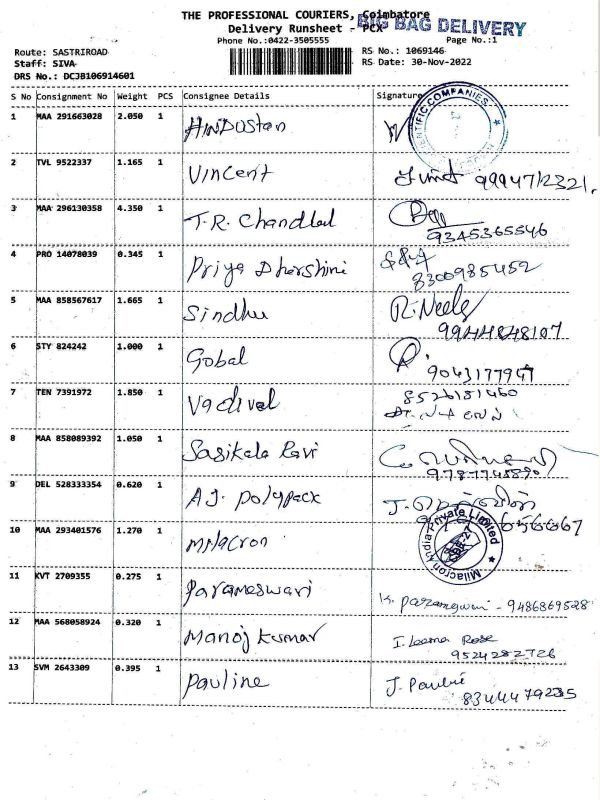 THE PROFESSIONAL COURIERS, Coimbatore
BIG BAG DELIVERY
Delivery Runsheet - PCX
Phone No.:0422-3505555 Page No.:1
Route: SASTRIROAD RS No.: 1069146
Staff: SIVA RS Date: 30-Nov-2022
DRS No.: DCJB106914601
S No Consignment No Weight PCS Consignee Details Signature
1 MAA 291663028 2.050 1 Hindustan
TIFIC COMPANIES
2 TVL 9522337 1.165 1 Vincent 9994712321.
3 MAA 296130358 4.350 1 T.R. Chandlal
9345365546
4 PRO 14078039 0.345 1 Priya Dharshini
8300985452
5 MAA 858567617 1.665 1 Sindhu R. Neela
9944848107
6 STY 824242 1.000 1 Gobal
9043177947
7 TEN 7391972 1.850 1 Vadivel 8526181460
8 MAA 858089392 1.050 1 Sasikala Ravi
9 DEL 528333354 0.620 1 A.J. Polypack
656667
10 MAA 293401576 1.270 1 Milacron
Milacron India Private Limited
11 KVT 2709355 0.275 1 Parameswari K. parameswari - 9486869528
12 MAA 568058924 0.320 1 Manoj Kumar I. Leema Rose
9524282726
13 SVM 2643309 0.395 1 Pauline J. Pauline
8344479235